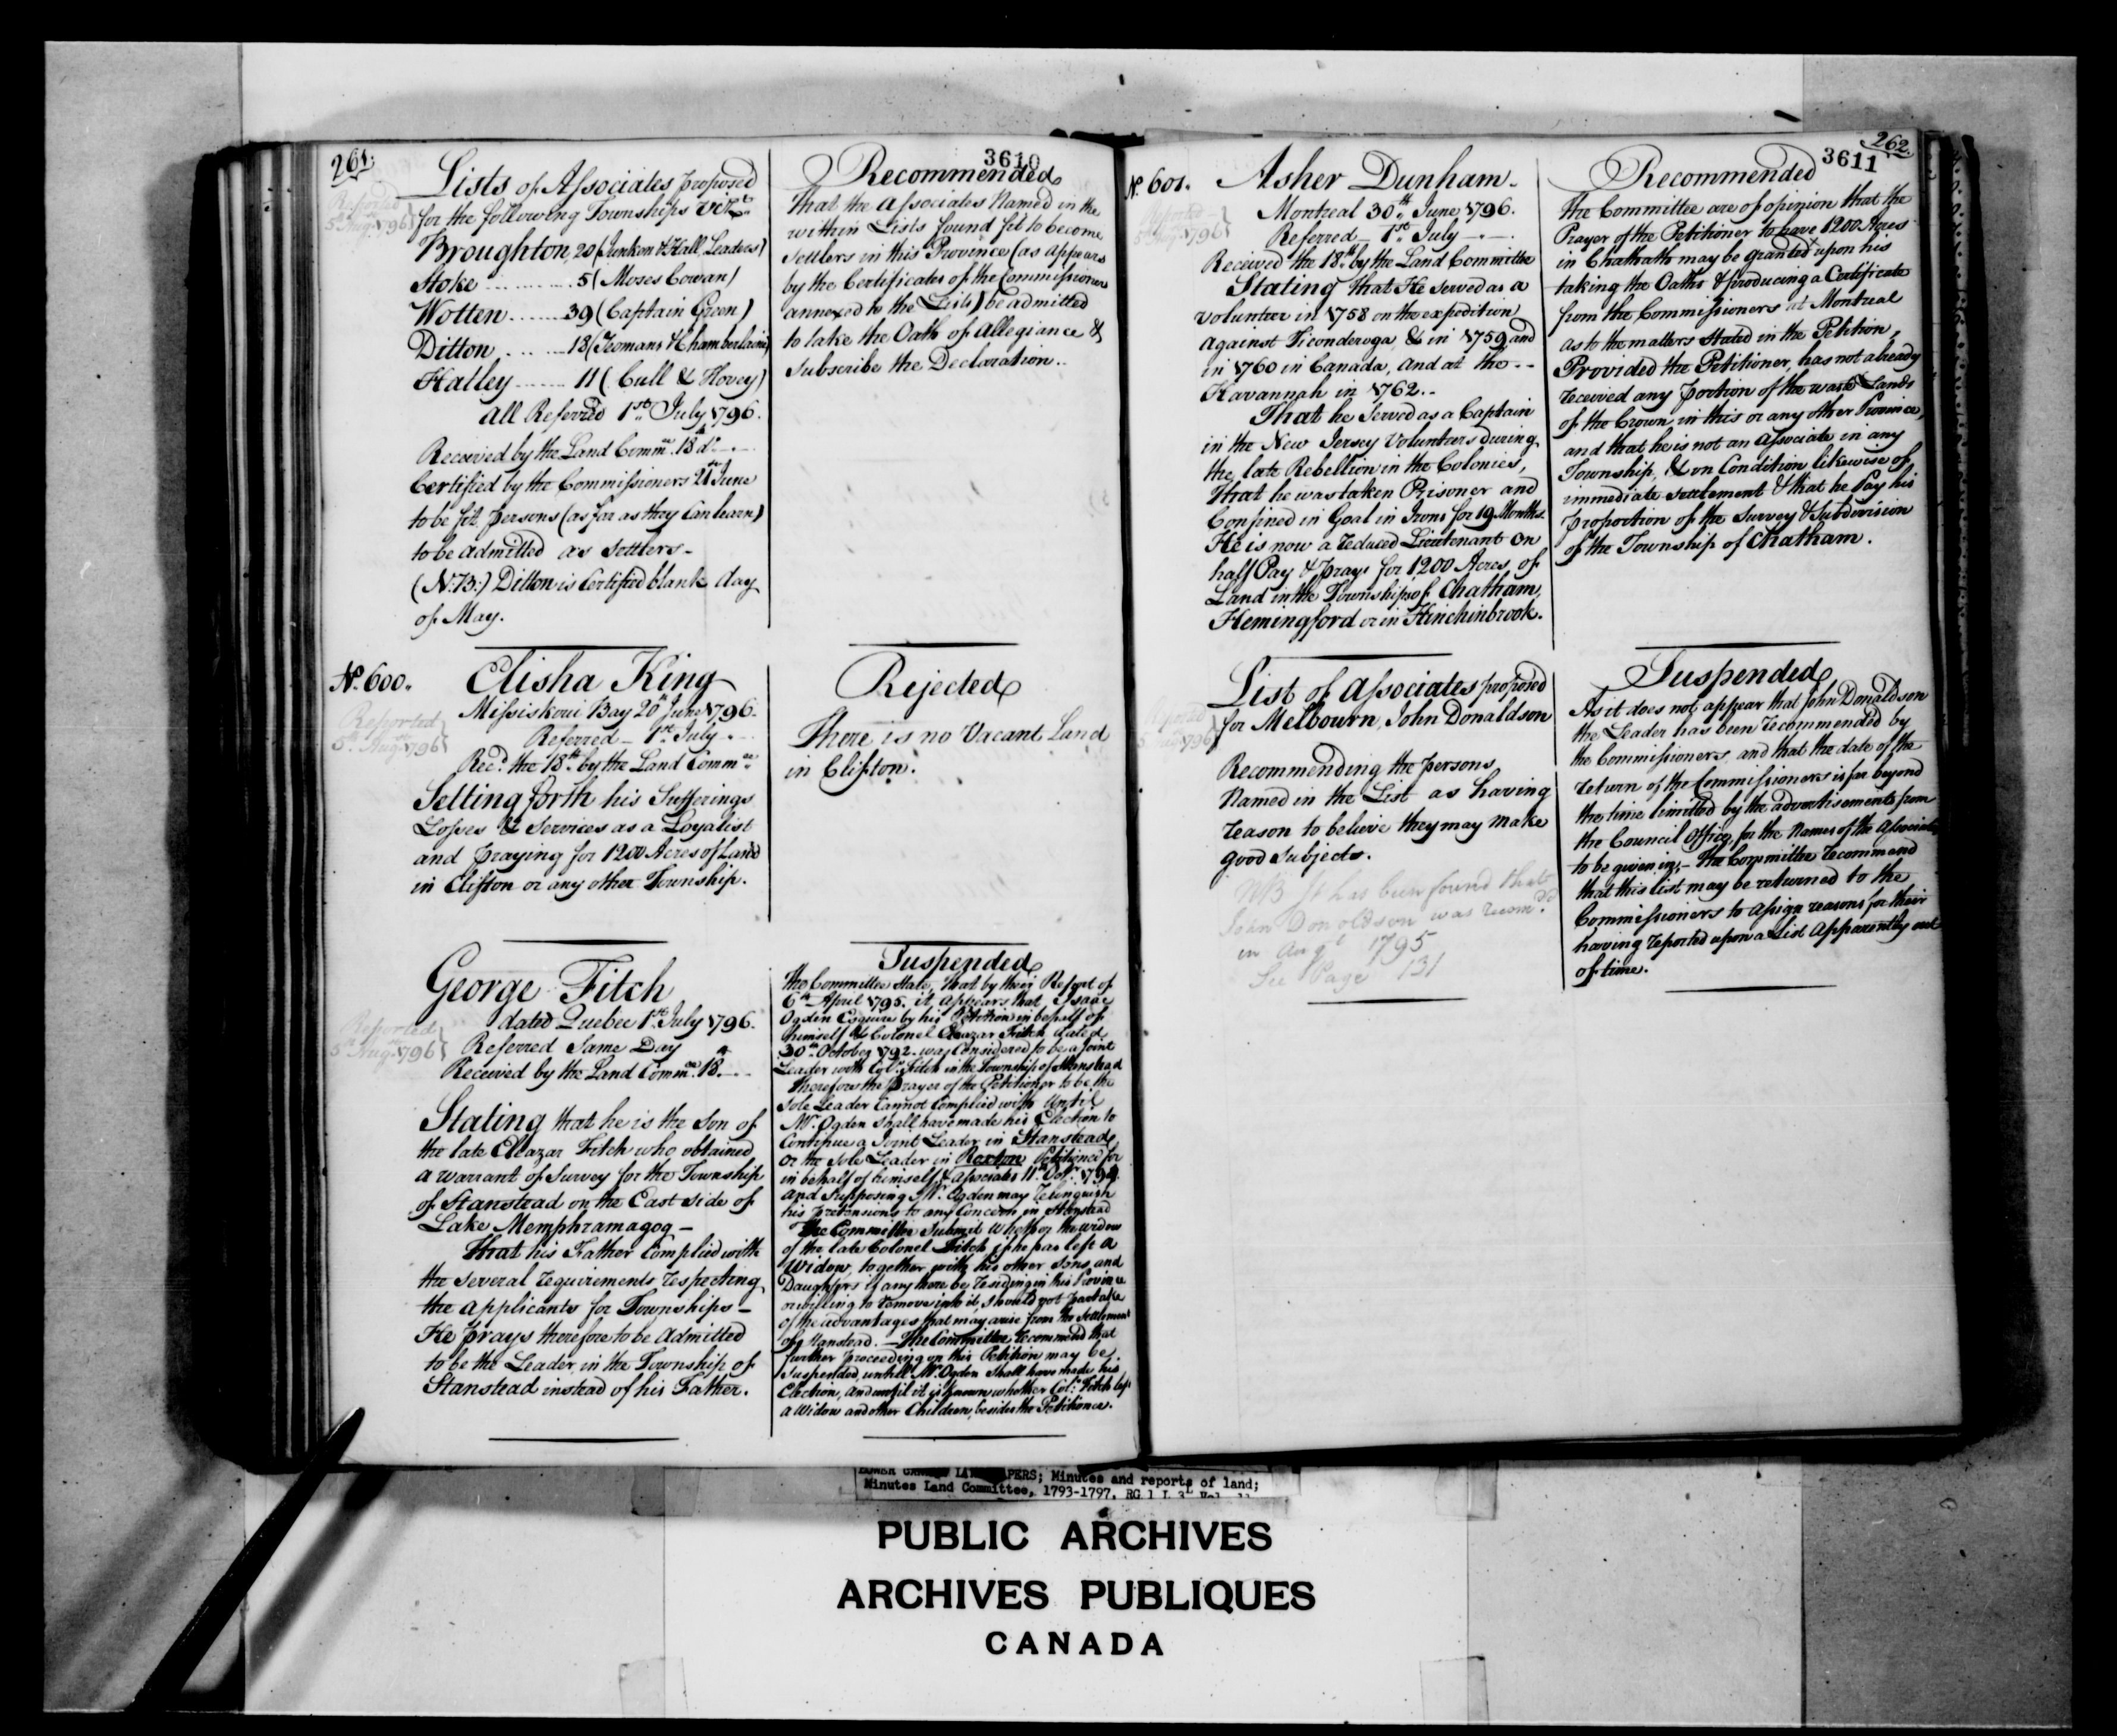 261.
3610
Reported
5th Augt 1796
Lists of Associates proposed
for the following Townships Vizt
Broughton, 20 (Junken & Hall, Leaders)
Stoke ............ 5 (Moses Cowan)
Wotten ....... 39 (Captain Green)
Ditton ........ 18 (Yeomans & Chamberlaine)
Hatley ....... 11 (Cull & Hovey)
All Referred 1st July 1796.
Received by the Land Commee 18 do
Certified by the Commissioners 21st June
to be fit persons (as far as they Can learn)
to be admitted as Settlers -
(N:B:) Ditton is Certified blank day
of May.
Recommended
That the Associates Named in the
within Lists found fit to become
Settlers in this Province (as appears
by the Certificates of the Commissioners
annexed to the Lists) be admitted
to take the Oath of Allegiance &
Subscribe the Declaration..
No. 600.
Reported
5th Augt 1796
Elisha King
Missiskoui Bay 20th June 1796.
Referred - 1st July
Recd. the 18th by the Land Commee
Setting forth his Sufferings
Losses & Services as a Loyalist
and praying for 1200 Acres of Land
in Clifton or any other Township.
Rejected
There is no Vacant Land
in Clifton.
Reported
5th Augt 1796
George Fitch
dated Quebec 1st July 1796.
Referred Same Day
Received by the Land Commee 18th
Stating that he is the Son of
the late Eleazar Fitch who obtained
a Warrant of Survey for the Township
of Stanstead on the East Side of
Lake Memphramagog -
That his Father Complied with
the Several requirements respecting
the Applicants for Townships -
He prays therefore to be Admitted
to be the Leader in the Township of
Stanstead instead of his Father.
Suspended
The Committee State, that by their Report of
6th April 1795, it appears that Isaac
Ogden Esquire by his Petition in behalf of
himself & Colonel Eleazar Fitch dated
30th October 1792. was Considered to be a joint
Leader with Colo. Fitch in the Township of Stanstead
Therefore the Prayer of the Petitioner to be the
Sole Leader Cannot Complied with Until
Mr. Ogden Shall have made his Election to
Continue a Joint Leader in Stanstead,
or the Sole Leader in Roxton Petitioned for
in behalf of himself & Associates 11th Octr. 1794.
and Supposing Mr. Ogden may relinquish
his pretensions to any Concern in Stanstead
The Committee Submit Whether the widow
of the late Colonel Fitch if he has left a
Widow, together with his other Sons and
Daughters if any there be, residing in this Province
or willing to remove into it, Should not partake
of the advantages that may arise from the Settlement
of Stanstead. - The Committee recommend that
further proceeding on this Petition may be
Suspended, untill Mr. Ogden Shall have made his
Election, and until it is known whether Colo. Fitch left
a Widow and other Children, besides the Petitioner.
262.
3611
No. 601.
Reported
5th Augt 1796
Asher Dunham -
Montreal 30th June 1796.
Referred - 1st July
Received the 18th by the Land Committee
Stating that He Served as a
Volunteer in 1758 on the expedition
against Ticonderoga, & in 1759 and
in 1760 in Canada, and at the --
Havannah in 1762..
That he Served as a Captain
in the New Jersey Volunteers during
the late Rebellion in the Colonies,
That he was taken Prisoner and
Confined in Goal in Irons for 19 Months.
He is now a reduced Lieutenant on
half Pay & prays for 1200 Acres of
Land in the Townships of Chatham,
Hemingford or in Hinchinbrook.
Recommended
The Committee are of opinion that the
Prayer of the Petitioner to have 1200 Acres
in Chatham may be granted upon his
taking the Oaths & producing a Certificate
from the Commissioners at Montreal
as to the matters Stated in the Petition,
Provided the Petitioner, has not already
received any portion of the waste Lands
of the Crown in this or any other Province,
and that he is not an Associate in any
Township, & on Condition likewise of
immediate Settlement & that he Pay his
proportion of the Survey & Subdivision
of the Township of Chatham.
Reported
5th Augt 1796
List of Associates proposed
for Melbourn, John Donaldson
Recommending the persons
Named in the List as having
reason to believe they may make
good Subjects.
NB It has been found that
John Donoldson was recomd.
in Augt 1795
See Page 131
Suspended
As it does not appear that John Donaldson
the Leader has been recommended by
the Commissioners, and that the date of the
return of the Commissioners is far beyond
the time limitted by the advertisements from
the Council Office, for the Names of the Associates
to be given in; - The Committee recommend
that this List may be returned to the
Commissioners to Assign reasons for their
having reported upon a List Apparently out
of time.
LOWER CANADA LAND PAPERS; Minutes and reports of land;
Minutes Land Committee, 1793-1797, RG 1 L 3
PUBLIC ARCHIVES
ARCHIVES PUBLIQUES
CANADA